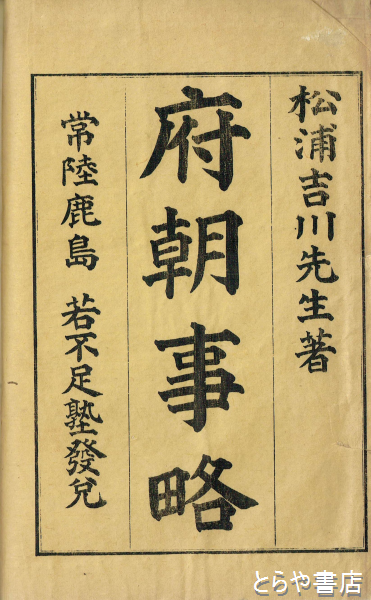 松浦吉川先生著
府朝事略
常陸鹿島 若不足塾發兌
とらや書店